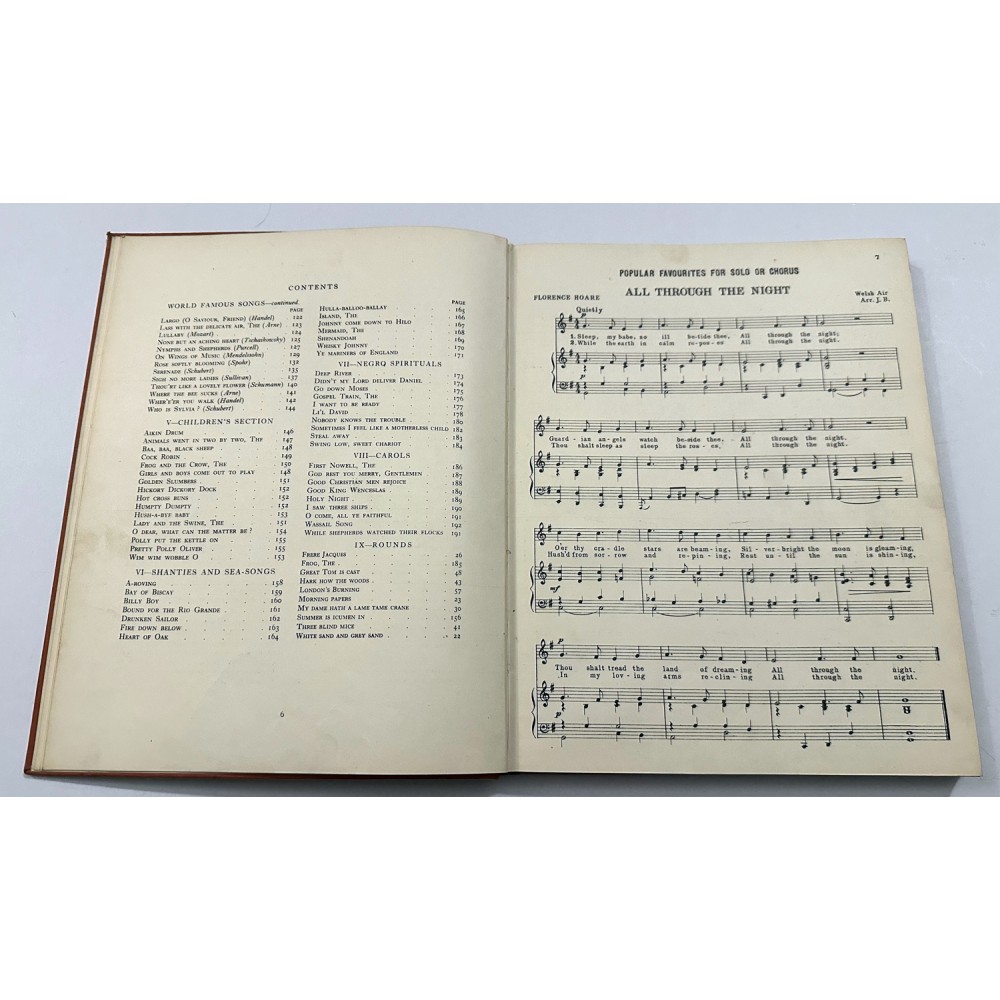 CONTENTS
WORLD FAMOUS SONGS—continued.
PAGE
LARGO (O SAVIOUR, FRIEND) (Handel) 122
LASS WITH THE DELICATE AIR, THE (Arne) 123
LULLABY (Mozart) 124
NONE BUT AN ACHING HEART (Tschaikowsky) 125
NYMPHS AND SHEPHERDS (Purcell) 127
ON WINGS OF MUSIC (Mendelssohn) 129
ROSE SOFTLY BLOOMING (Spohr) 132
SERENADE (Schubert) 135
SIGH NO MORE LADIES (Sullivan) 137
THOU'RT LIKE A LOVELY FLOWER (Schumann) 140
WHERE THE BEE SUCKS (Arne) 141
WHEN'ER YOU WALK (Handel) 142
WHO IS SYLVIA? (Schubert) 144
V—CHILDREN'S SECTION
AIKIN DRUM 146
ANIMALS WENT IN TWO BY TWO, THE 147
BAA, BAA, BLACK SHEEP 148
COCK ROBIN 149
FROG AND THE CROW, THE 150
GIRLS AND BOYS COME OUT TO PLAY 148
GOLDEN SLUMBERS 151
HICKORY DICKORY DOCK 152
HOT CROSS BUNS 152
HUMPTY DUMPTY 152
HUSH-A-BYE BABY 153
LADY AND THE SWINE, THE 151
O DEAR, WHAT CAN THE MATTER BE? 154
POLLY PUT THE KETTLE ON 155
PRETTY POLLY OLIVER 155
WIM WIM WOBBLE O 153
VI—SHANTIES AND SEA-SONGS
A-ROVING 158
BAY OF BISCAY 159
BILLY BOY 160
BOUND FOR THE RIO GRANDE 161
DRUNKEN SAILOR 162
FIRE DOWN BELOW 163
HEART OF OAK 164
PAGE
HULLA-BALLOO-BALLAY 165
ISLAND, THE 166
JOHNNY COME DOWN TO HILO 167
MERMAID, THE 168
SHENANDOAH 169
WHISKY JOHNNY 170
YE MARINERS OF ENGLAND 171
VII—NEGRO SPIRITUALS
DEEP RIVER 173
DIDN'T MY LORD DELIVER DANIEL 174
GO DOWN MOSES 175
GOSPEL TRAIN, THE 176
I WANT TO BE READY 177
LI'L DAVID 178
NOBODY KNOWS THE TROUBLE 180
SOMETIMES I FEEL LIKE A MOTHERLESS CHILD 182
STEAL AWAY 183
SWING LOW, SWEET CHARIOT 184
VIII—CAROLS
FIRST NOWELL, THE 186
GOD REST YOU MERRY, GENTLEMEN 187
GOOD CHRISTIAN MEN REJOICE 188
GOOD KING WENCESLAS 189
HOLY NIGHT 189
I SAW THREE SHIPS 190
O COME, ALL YE FAITHFUL 191
WASSAIL SONG 192
WHILE SHEPHERDS WATCHED THEIR FLOCKS 191
IX—ROUNDS
FRERE JACQUES 26
FROG, THE 185
GREAT TOM IS CAST 48
HARK HOW THE WOODS 43
LONDON'S BURNING 57
MORNING PAPERS 23
MY DAME HATH A LAME TAME CRANE 30
SUMMER IS ICUMEN IN 156
THREE BLIND MICE 41
WHITE SAND AND GREY SAND 22
6
7
POPULAR FAVOURITES FOR SOLO OR CHORUS
ALL THROUGH THE NIGHT
FLORENCE HOARE
Welsh Air
Arr. J. B.
Quietly
p
1. Sleep, my babe, no ill be-tide thee, All through the night;
2. While the earth in calm re-pos-es All through the night;
p
Guard-ian an-gels watch be-side thee, All through the night.
Thou shalt sleep as sleep the ros-es, All through the night.
O'er thy cra-dle stars are beam-ing, Sil-ver bright the moon is gleam-ing,
Hush'd from sor-row and re-pin-ing, Rest un-til the sun is shin-ing,
mf
p
Thou shalt tread the land of dream-ing All through the night.
In my lov-ing arms re-clin-ing All through the night.
p